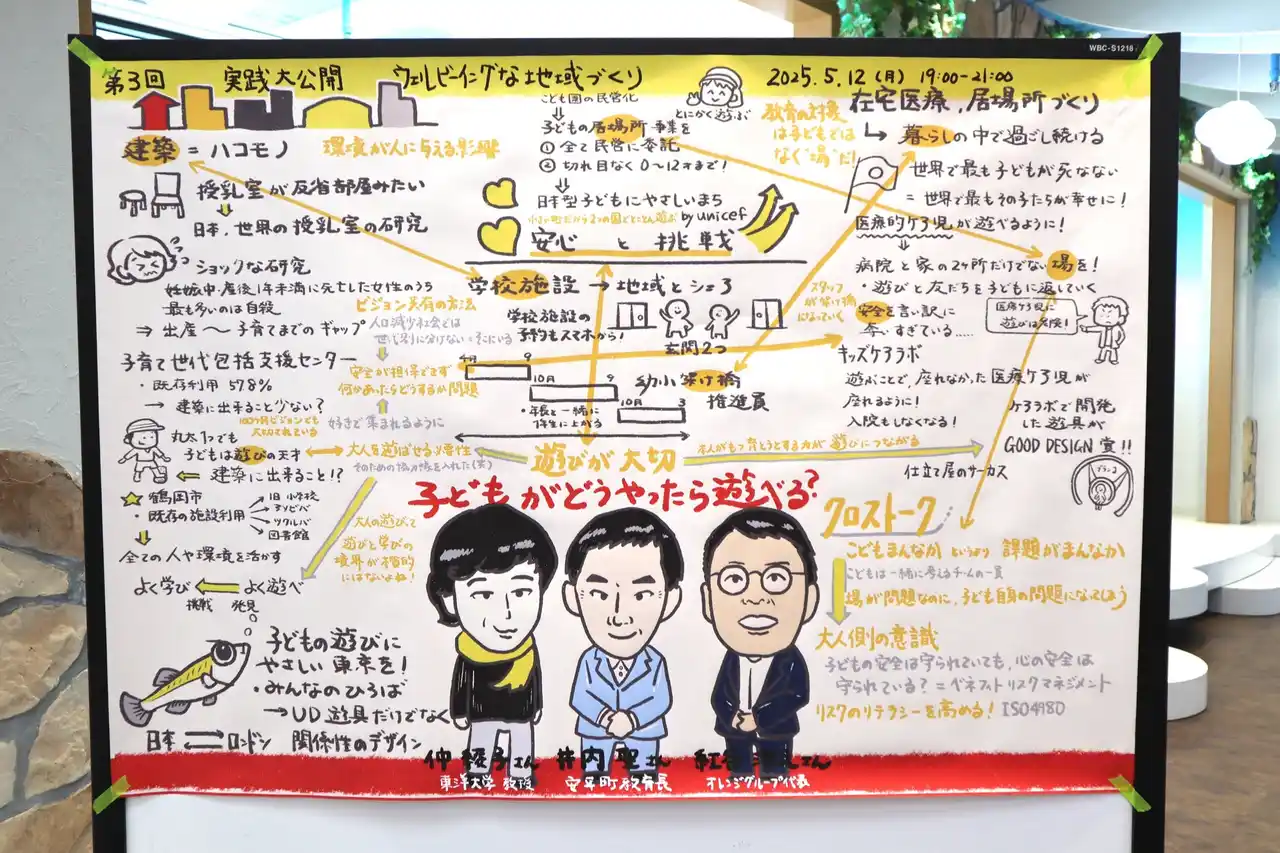 WBC-S1218
第3回 実践大公開 ウェルビイングな地域づくり
2025.5.12(月) 19:00-21:00
建築 = ハコモノ
環境が人に与える影響
授乳室が反省部屋みたい
日本、世界の授乳室の研究
ショックな研究
妊娠中・産後1年未満に死亡した女性のうち
最も多いのは自殺
⇒ 出産〜子育てまでのギャップ
子育て世代包括支援センター
・既存利用 57.8%
→ 建築に出来ること少ない?
丸太1つでも
子どもは遊びの天才
建築に出来ること!?
鶴岡市
・既存の施設利用
旧小学校
図書館
全ての人や環境を活かす
よく学び ← よく遊べ
挑戦 発見
子どもの遊びに
やさしい東京を!
・みんなのひろば
→ UD遊具だけでなく
日本 ⇄ ロンドン 関係性のデザイン
こども園の民営化
子どもの居場所事業を
① 全て民営に委託
② 切れ目なく0〜12才まで!
とにかく遊ぶ
日本型子どもにやさしいまち
by unicef
安心 と 挑戦
学校施設 → 地域とシェア
学校施設の
予約もスマホから!
玄関2つ
ビジョン共有の方法
人口減少社会では
安全が担保できず
何かあったらどうするか問題
好きで集まれるように
4月 9
10月 9
10月 3
・年長と一緒に
1年生に上がる
幼小架け橋
推進員
スタッフ
が架け橋
になっていく
大人を遊ばせる必要性
遊びが大切
本人がもつ育とうとする力が遊びにつながる
子どもがどうやったら遊べる?
大人の遊びって
遊びと学びの
境界が本質的
にはないよね!
教育の対象
は子どもでは
なく“場”だ!
在宅医療、居場所づくり
暮らしの中で過ごし続ける
世界で最も子どもが死なない
= 世界で最もその子たちが幸せに!
医療的ケア児が遊べるように!
病院と家の2ヶ所だけでない場を!
・遊びと友だちを子どもに返していく
安全を言い訳に
奪いすぎている……
医療ケア児に
遊びは危険!
キッズケアラボ
遊ぶことで、座れなかった医療ケア児が
座れるように!
入院もしなくなる!
ケアラボで開発
した遊具が
GOOD DESIGN 賞!!
仕立て屋のサーカス
ブランコ
クロストーク
こどもまんなか というより 課題がまんなか
こどもは一緒に考えるチームの一員
場が問題なのに、子ども自身の問題になってしまう
大人側の意識
子どもの安全は守られていても、心の安全は
守られている? = ベネフィットリスクマネジメント
リスクのリテラシーを高める! ISO4980
仲 綾子さん
東洋大学 教授
井内 聖さん
安平町教育長
さん
オレンジグループ代表